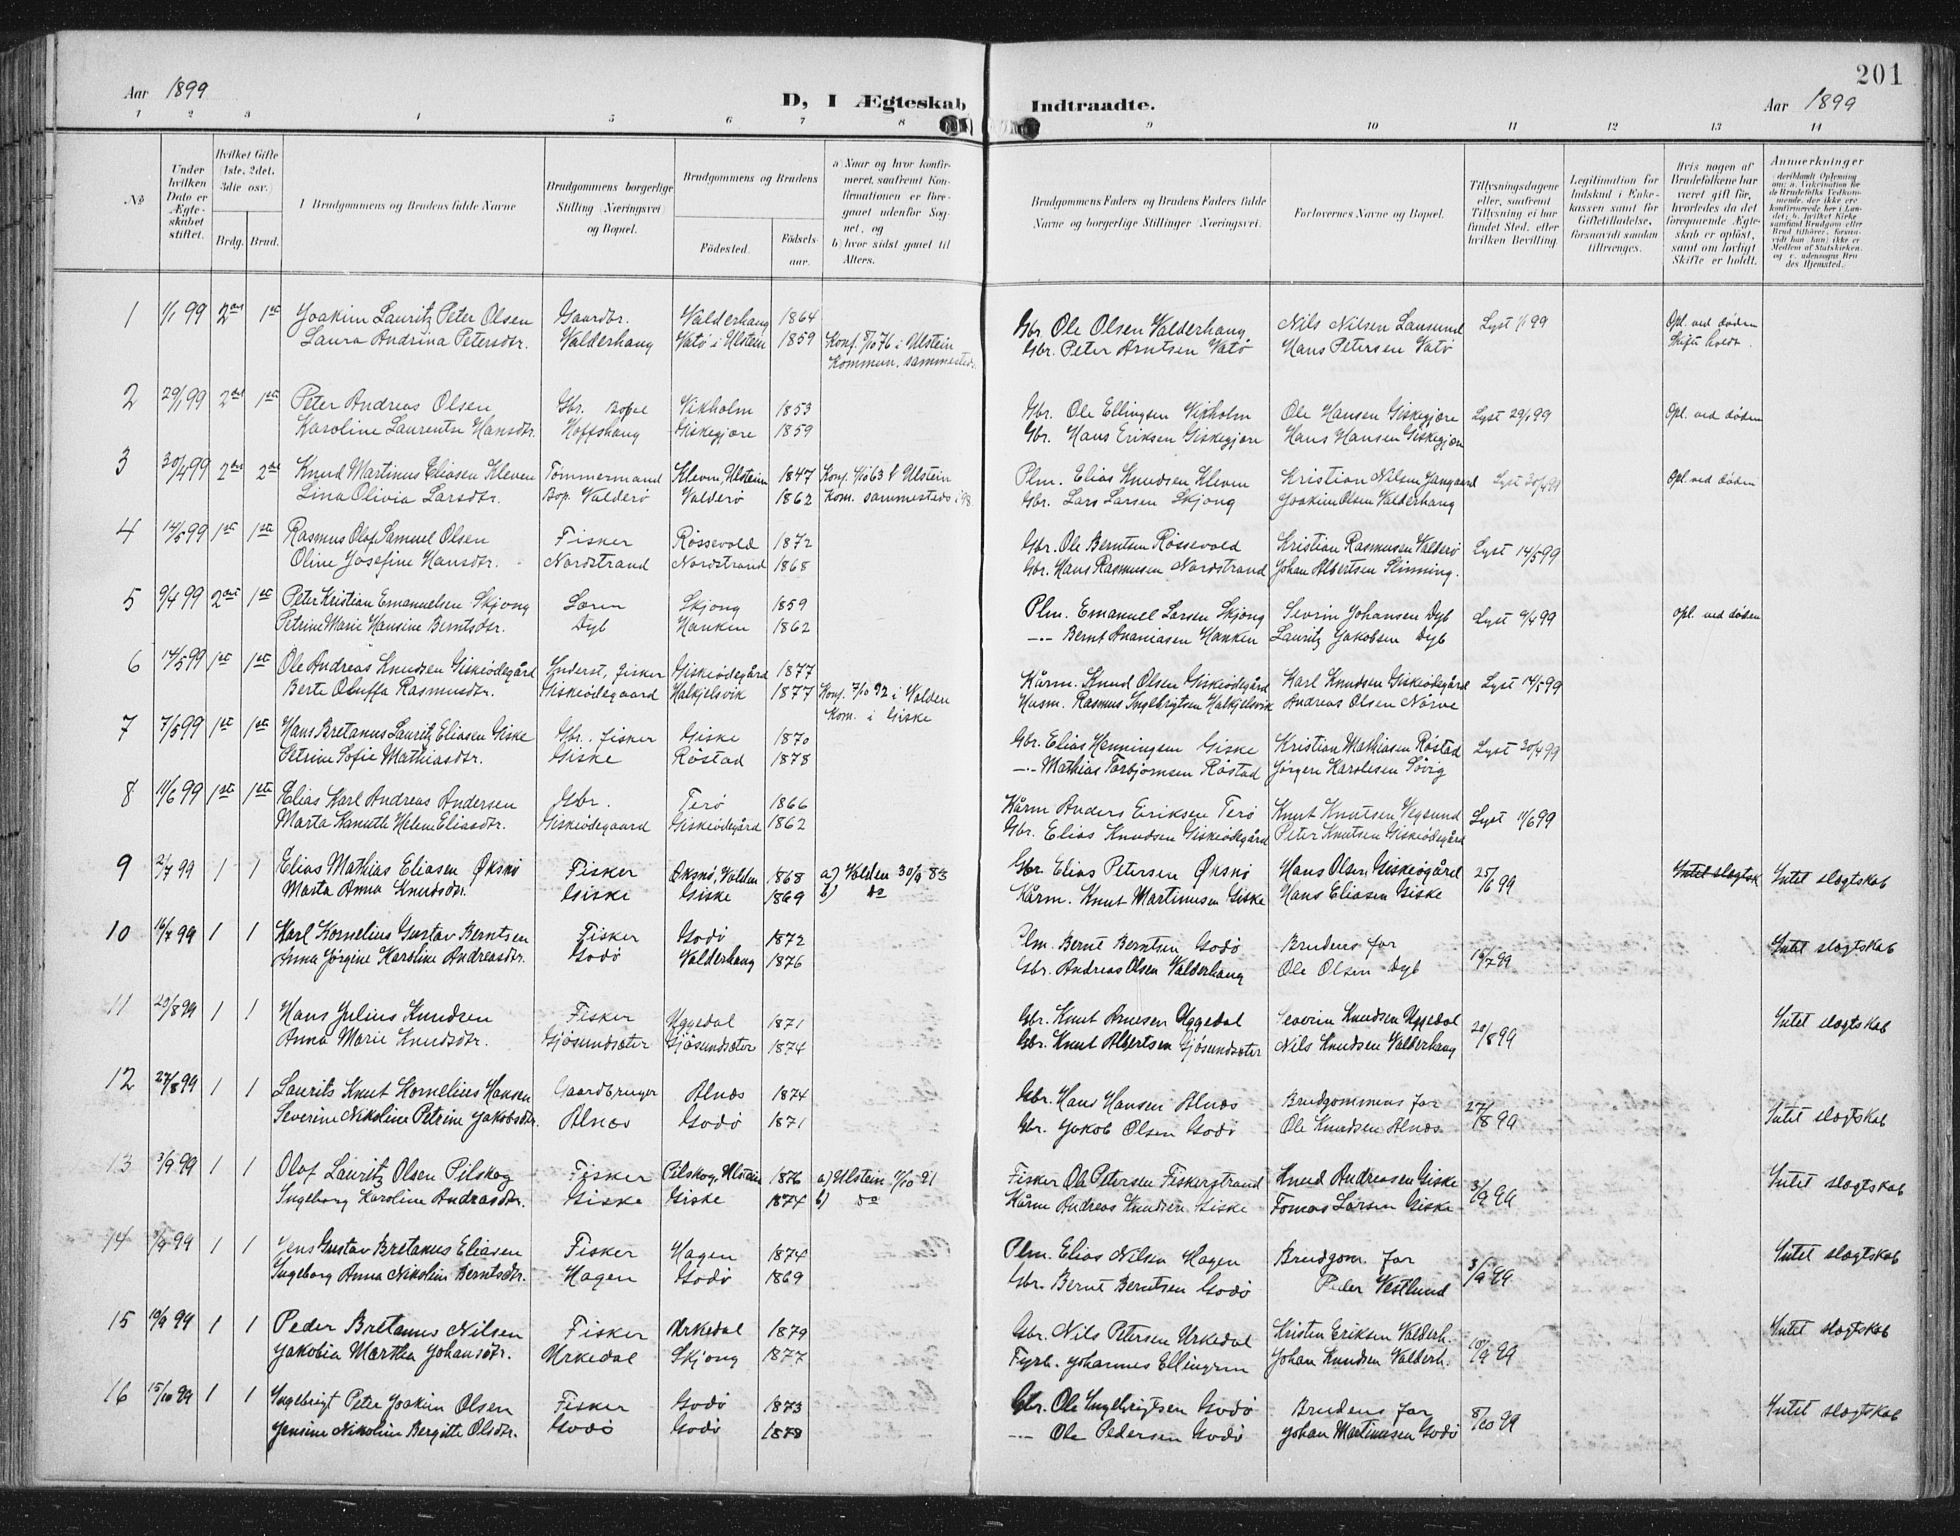 201
Aar 1899
D, I Ægteskab Indtraadte.
Aar 1899
1 2 3 4 5 6 7 8 9 10 11 12 13 14
№
Under hvilken Dato er Ægteskabet stiftet.
Hvilket Gifte (1ste, 2det, 3die osv.)
Brdg. Brud.
Brudgommens og Brudens fulde Navne
Brudgommens borgerlige Stilling (Næringsvei) og Bopæl.
Brudgommens og Brudens
Födested.
Födselsaar.
a) Naar og hvor konfirmeret, saafremt Konfirmationen er foregaaet udenfor Sognet, og
b) hvor sidst gaaet til Alters.
Brudgommens Faders og Brudens Faders fulde Navne og borgerlige Stillinger (Næringsvei.
Forlovernes Navne og Bopæl.
Tillysningsdagene eller, saafremt Tillysning ei har fundet Sted, efter hvilken Bevilling.
Legitimation for Indskud i Enkekassen samt for Giftetilladelse, forsaavidt saadan tiltrænges.
Hvis nogen af Brudefolkene har været gift för, hvorledes da det foregaaende Ægteskab er oplöst, samt om lovligt Skifte er holdt.
Anmærkninger
1 1/1 99 2det 1ste Joakim Lauritz Peter Olsen Gaardbr. Valderhaug 1864 Gbr. Ole Olsen Valderhaug Nils Nilsen Lansund Lyst 1/1 99 Opl. ved döden
Laura Andrina Petersdtr. Valderhaug Vatö i Ulstein 1859 Konf. 8/10 76 i Ulstein Gbr. Peter Arntsen Vatö Hans Petersen Vatö Skifte holdt.
Kommun. sammesteds
2 29/1 99 2det 1ste Peter Andreas Olsen Gbr. Bopæl Vikholm 1853 Gbr. Ole Ellingsen Vikholm Ole Hansen Giskegjære Lyst 29/1 99 Opl. ved döden
Karoline Laurentse Hansdtr. Hoffshaug Giskegjære 1859 Gbr. Hans Eriksen Giskegjære Hans Hansen Giskegjære
3 30/4 99 2det 2det Knud Martinus Eliasen Kleven Tömmermand Klevm, Ulstein 1847 Konf. 4/10 63 i Ulstein Plm. Elias Knudsen Klevm Kristian Nilsen Lyst 30/4 99 Opl. ved döden
Lina Olivia Larsdtr. Bop. Valderö Valderö 1862 Kom. sammesteds i 98. Gbr. Lars Larsen Skjong Joakim Olsen Valderhaug
4 14/5 99 1ste 1ste Rasmus Olaf Samuel Olsen Fisker Rössevold 1872 Gbr. Ole Berntsen Rössevold Kristian Rasmusen Valderö Lyst 14/5 99
Oline Josefine Hansdtr. Nordstrand Nordstrand 1868 Gbr. Hans Rasmusen Nordstrand Johan Albertsen Slinning.
5 9/4 99 2det 1ste Peter Kristian Emanuelsen Skjong Skjong 1859 Plm. Emanuel Larsen Skjong Sevrin Johansen Dyb Lyst 9/4 99 Opl. ved döden
Petrine Marie Hansine Berntsdtr. Dyb Hanken 1862 —·— Bernt Ananiasen Hanken Lauritz Jakobsen Dyb
6 14/5 99 1ste 1ste Ole Andreas Knudsen Giskeödegård Inderst, fisker Giskeödegård 1877 Kårm. Knud Olsen Giskeödegård Karl Knudsen Giskeödegård Lyst 14/5 99
Berte Oluffa Rasmusdtr. Giskeödegaard Halkjelsvik 1877 Konf. 2/10 92 i Volden Husm. Rasmus Ingebrigtsen Halkjelsvik Andreas Olsen Nörve
Kom. i Giske
7 7/5 99 1ste 1ste Hans Bretanus Lauritz Eliasen Giske Gbr. fisker Giske 1870 Gbr. Elias Henningsen Giske Kristian Mathiasen Röstad Lyst 30/4 99
Petrine Sofie Mathiasdtr. Giske Röstad 1878 —·— Mathias Torbjörnsen Röstad Jörgen Karolusen Sövig
8 11/6 99 1ste 1ste Elias Karl Andreas Andersen Gbr. Terö 1866 Kårm Anders Eriksen Terö Knut Knutsen Vegsund Lyst 11/6 99
Marta Kanutte Helene Eliasdtr. Giskeödegaard Giskeödegård 1862 Gbr. Elias Knudsen Giskeödegård Peter Knutsen Giskeödegård
9 2/7 99 1 1 Elias Mathias Eliasen Øksnö Fisker Øksnö, Volden 1868 a) Volden 30/9 83 Gbr Elias Petersen Øksnö Hans Olsen Giskeögård 25/6 99 Intet slægtsk Intet slægtskab
Marta Anna Knudsdtr. Giske Giske 1869 b) do Kårm. Knut Martinusen Giske Hans Eliasen Giske
10 16/7 99 1 1 Karl Kornelius Gustav Berntsen Fisker Godö 1872 Plm. Bernt Berntsen Godö Brudens far 16/7 99 Intet slægtskab
Anna Jörgine Karoline Andreasdtr. Godö Valderhaug 1876 Gbr. Andreas Olsen Valderhaug Ole Olsen Dyb
11 20/8 99 1 1 Hans Julius Knudsen Fisker Uggedal 1871 Gbr. Knut Arnesen Uggedal Severin Knudsen Uggedal 20/8 99 Intet slægtskab
Anna Marie Knudsdtr. Gjösundsæter Gjösundsæter 1874 Gbr. Knut Albertsen Gjösundsæter Nils Knudsen Valderhaug
12 27/8 99 1 1 Laurits Knut Kornelius Hansen Gaardbruger Alnæs 1874 Gbr. Hans Hansen Alnæs Brudgommens far 27/8 99 Intet slægtskab
Severine Nikoline Petrine Jakobsdtr. Alnæs Godö 1871 Gbr. Jakob Olsen Godö Ole Knudsen Alnæs
13 3/9 99 1 1 Olaf Lauritz Olsen Pilskog Fisker Pilskog, Ulstein 1876 a) Ulstein 4/10 91 Fisker Ole Petersen Fiskerstrand Knud Andreasen Giske 3/9 99 Intet slægtskab
Ingeborg Karoline Andreasdtr. Giske Giske 1874 b) do Kårm Andreas Knudsen Giske Tomas Larsen Giske
14 3/9 99 1 1 Jens Gustav Bretanus Eliasen Fisker Hagen 1874 Plm. Elias Nilsen Hagen Brudgom. far 3/9 99 Intet slægtskab
Ingeborg Anna Nikoline Berntsdtr. Hagen Godö 1869 Gbr. Bernt Berntsen Godö Peder Vestlund
15 10/9 99 1 1 Peder Bretanus Nilsen Fisker Urkedal 1879 Gbr. Nils Petersen Urkedal Kristen Eriksen Valderh. 10/9 99 Intet slægtskab
Jakobia Martha Johansdtr. Urkedal Skjong 1877 Fyrb. Johannes Ellingsen Johan Knudsen Valderh.
16 15/10 99 1 1 Ingebrigt Peter Joakim Olsen Fisker Godö 1873 Gbr. Ole Ingebrigtsen Godö Brudens far 8/10 99 Intet slægtskab
Jensine Nikoline Bergitte Olsdtr. Godö Godö 1878 —·— Ole Pedersen Godö Johan Martinusen Godö